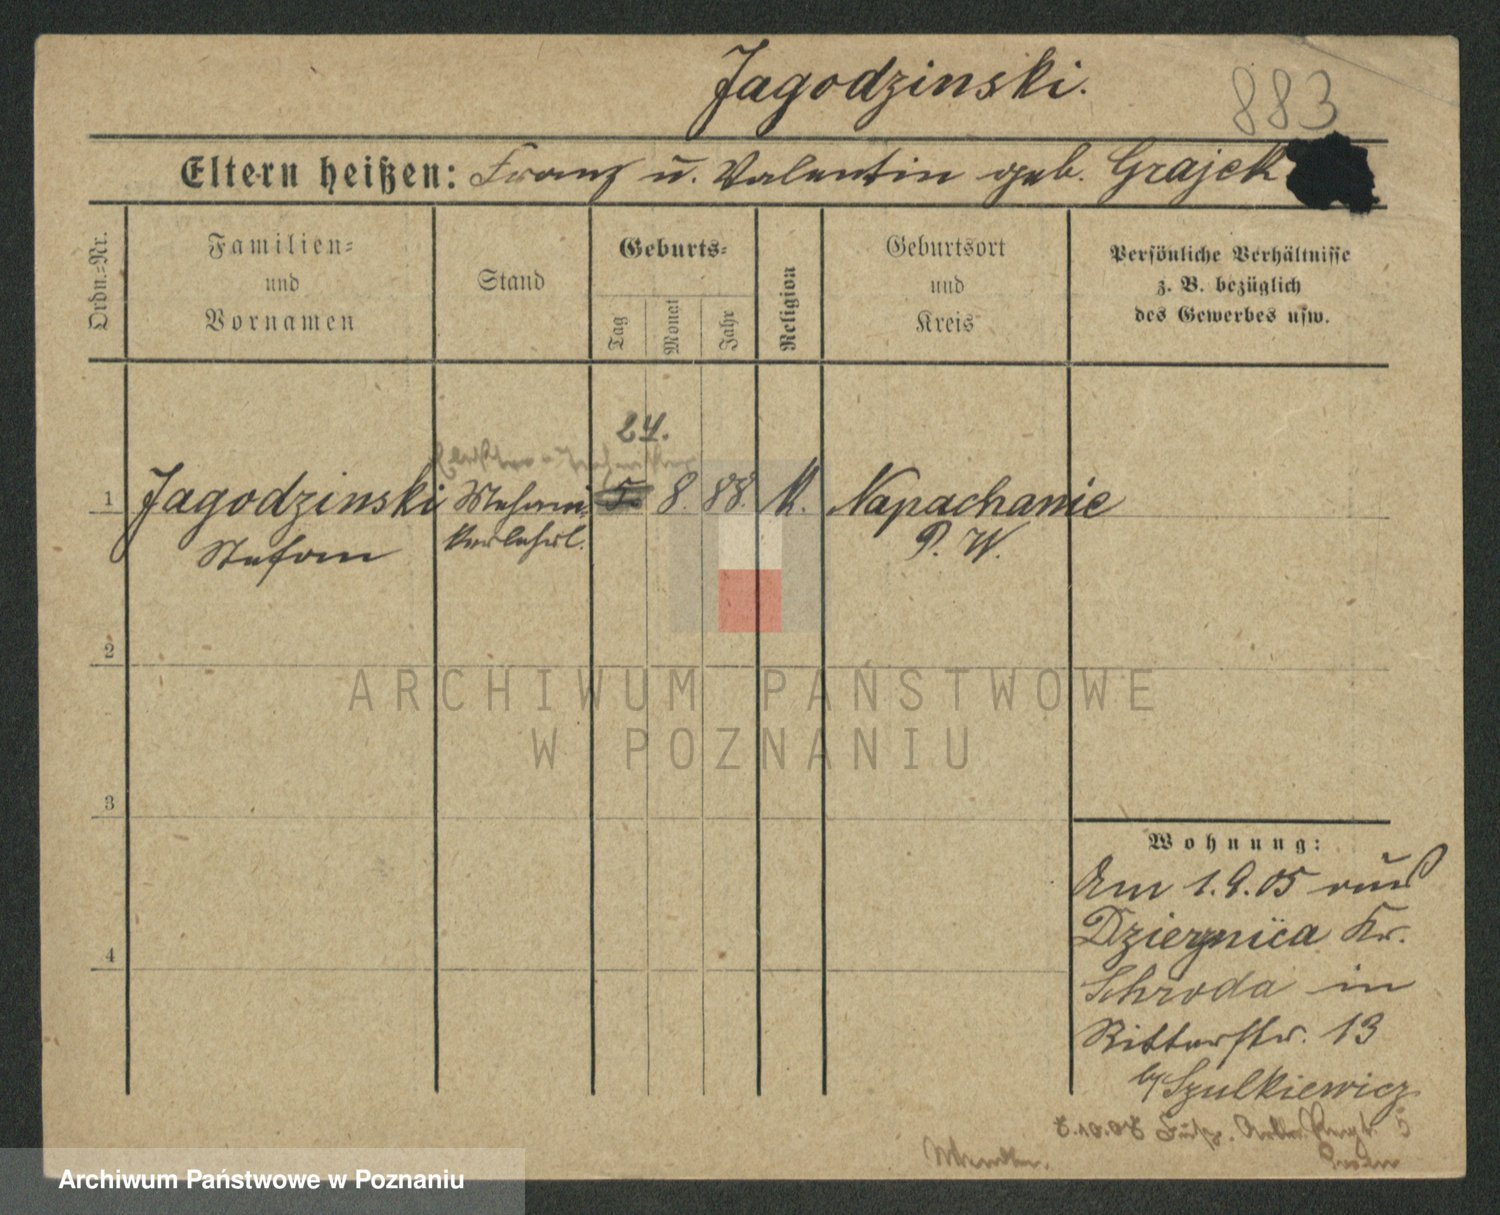 Jagodzinski.
883
Eltern heißen: Franz u. Valentin geb. Grajek
Ordn.-Nr.
Familien- und Vornamen
Stand
Geburts-
Tag
Monat
Jahr
Religion
Geburtsort und Kreis
Persönliche Verhältnisse
z. B. bezüglich
des Gewerbes usw.
24.
1 Jagodzinski Mechani- 5. 8. 88. K. Napachanie
Stefan kerlehrl. P. W.
2
3
4
ARCHIWUM PAŃSTWOWE
W POZNANIU
Wohnung:
Am 1.9.05 aus
Dziergnica Kr.
Schroda in
Ritterstr. 13
b/ Szulkiewicz
8.10.08 Fuß. Artl. Regt. 5
Posen
Archiwum Państwowe w Poznaniu